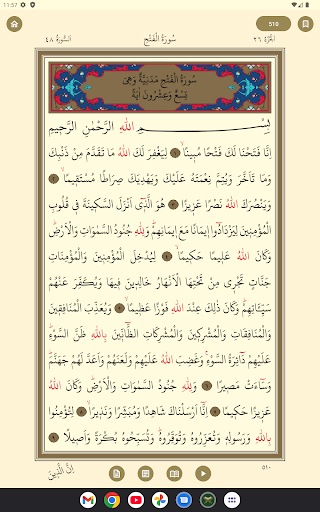 11:57
السُّورَةُ ٤٨
سُورَةُ الْفَتْحِ
510
اَلْجُزْءُ ٢٦
سُورَةُ الْفَتْحِ مَدَنِيَّةٌ وَهِيَ
تِسْعٌ وَعِشْرُونَ اٰيَةً
بِسْمِ اللّٰهِ الرَّحْمٰنِ الرَّحِيمِ
اِنَّا فَتَحْنَا لَكَ فَتْحًا مُبِينًاۙ ١ لِيَغْفِرَ لَكَ اللّٰهُ مَا تَقَدَّمَ مِنْ ذَنْبِكَ
وَمَا تَاَخَّرَ وَيُتِمَّ نِعْمَتَهُ عَلَيْكَ وَيَهْدِيَكَ صِرَاطًا مُسْتَقِيمًاۙ ٢
وَيَنْصُرَكَ اللّٰهُ نَصْرًا عَزِيزًا ٣ هُوَ الَّذِٓي اَنْزَلَ السَّكِينَةَ فِي قُلُوبِ
الْمُؤْمِنِينَ لِيَزْدَادُٓوا اِيمَانًا مَعَ اِيمَانِهِمْ وَلِلّٰهِ جُنُودُ السَّمٰوَاتِ وَالْاَرْضِۜ
وَكَانَ اللّٰهُ عَلِيمًا حَكِيمًاۙ ٤ لِيُدْخِلَ الْمُؤْمِنِينَ وَالْمُؤْمِنَاتِ
جَنَّاتٍ تَجْرِي مِنْ تَحْتِهَا الْاَنْهَارُ خَالِدِينَ فِيهَا وَيُكَفِّرَ عَنْهُمْ
سَيِّـَٔاتِهِمْۜ وَكَانَ ذٰلِكَ عِنْدَ اللّٰهِ فَوْزًا عَظِيمًاۙ ٥ وَيُعَذِّبَ الْمُنَافِقِينَ
وَالْمُنَافِقَاتِ وَالْمُشْرِكِينَ وَالْمُشْرِكَاتِ الظَّٓانِّينَ بِاللّٰهِ ظَنَّ السَّوْءِۜ
عَلَيْهِمْ دَٓائِرَةُ السَّوْءِۚ وَغَضِبَ اللّٰهُ عَلَيْهِمْ وَلَعَنَهُمْ وَاَعَدَّ لَهُمْ جَهَنَّمَۜ
وَسَٓاءَتْ مَصِيرًا ٦ وَلِلّٰهِ جُنُودُ السَّمٰوَاتِ وَالْاَرْضِۜ وَكَانَ اللّٰهُ
عَزِيزًا حَكِيمًا ٧ اِنَّٓا اَرْسَلْنَاكَ شَاهِدًا وَمُبَشِّرًا وَنَذِيرًاۙ ٨ لِتُؤْمِنُوا
بِاللّٰهِ وَرَسُولِهِ وَتُعَزِّرُوهُ وَتُوَقِّرُوهُۜ وَتُسَبِّحُوهُ بُكْرَةً وَاَصِيلًا ٩
اِنَّ الَّذِينَ
٥١٠